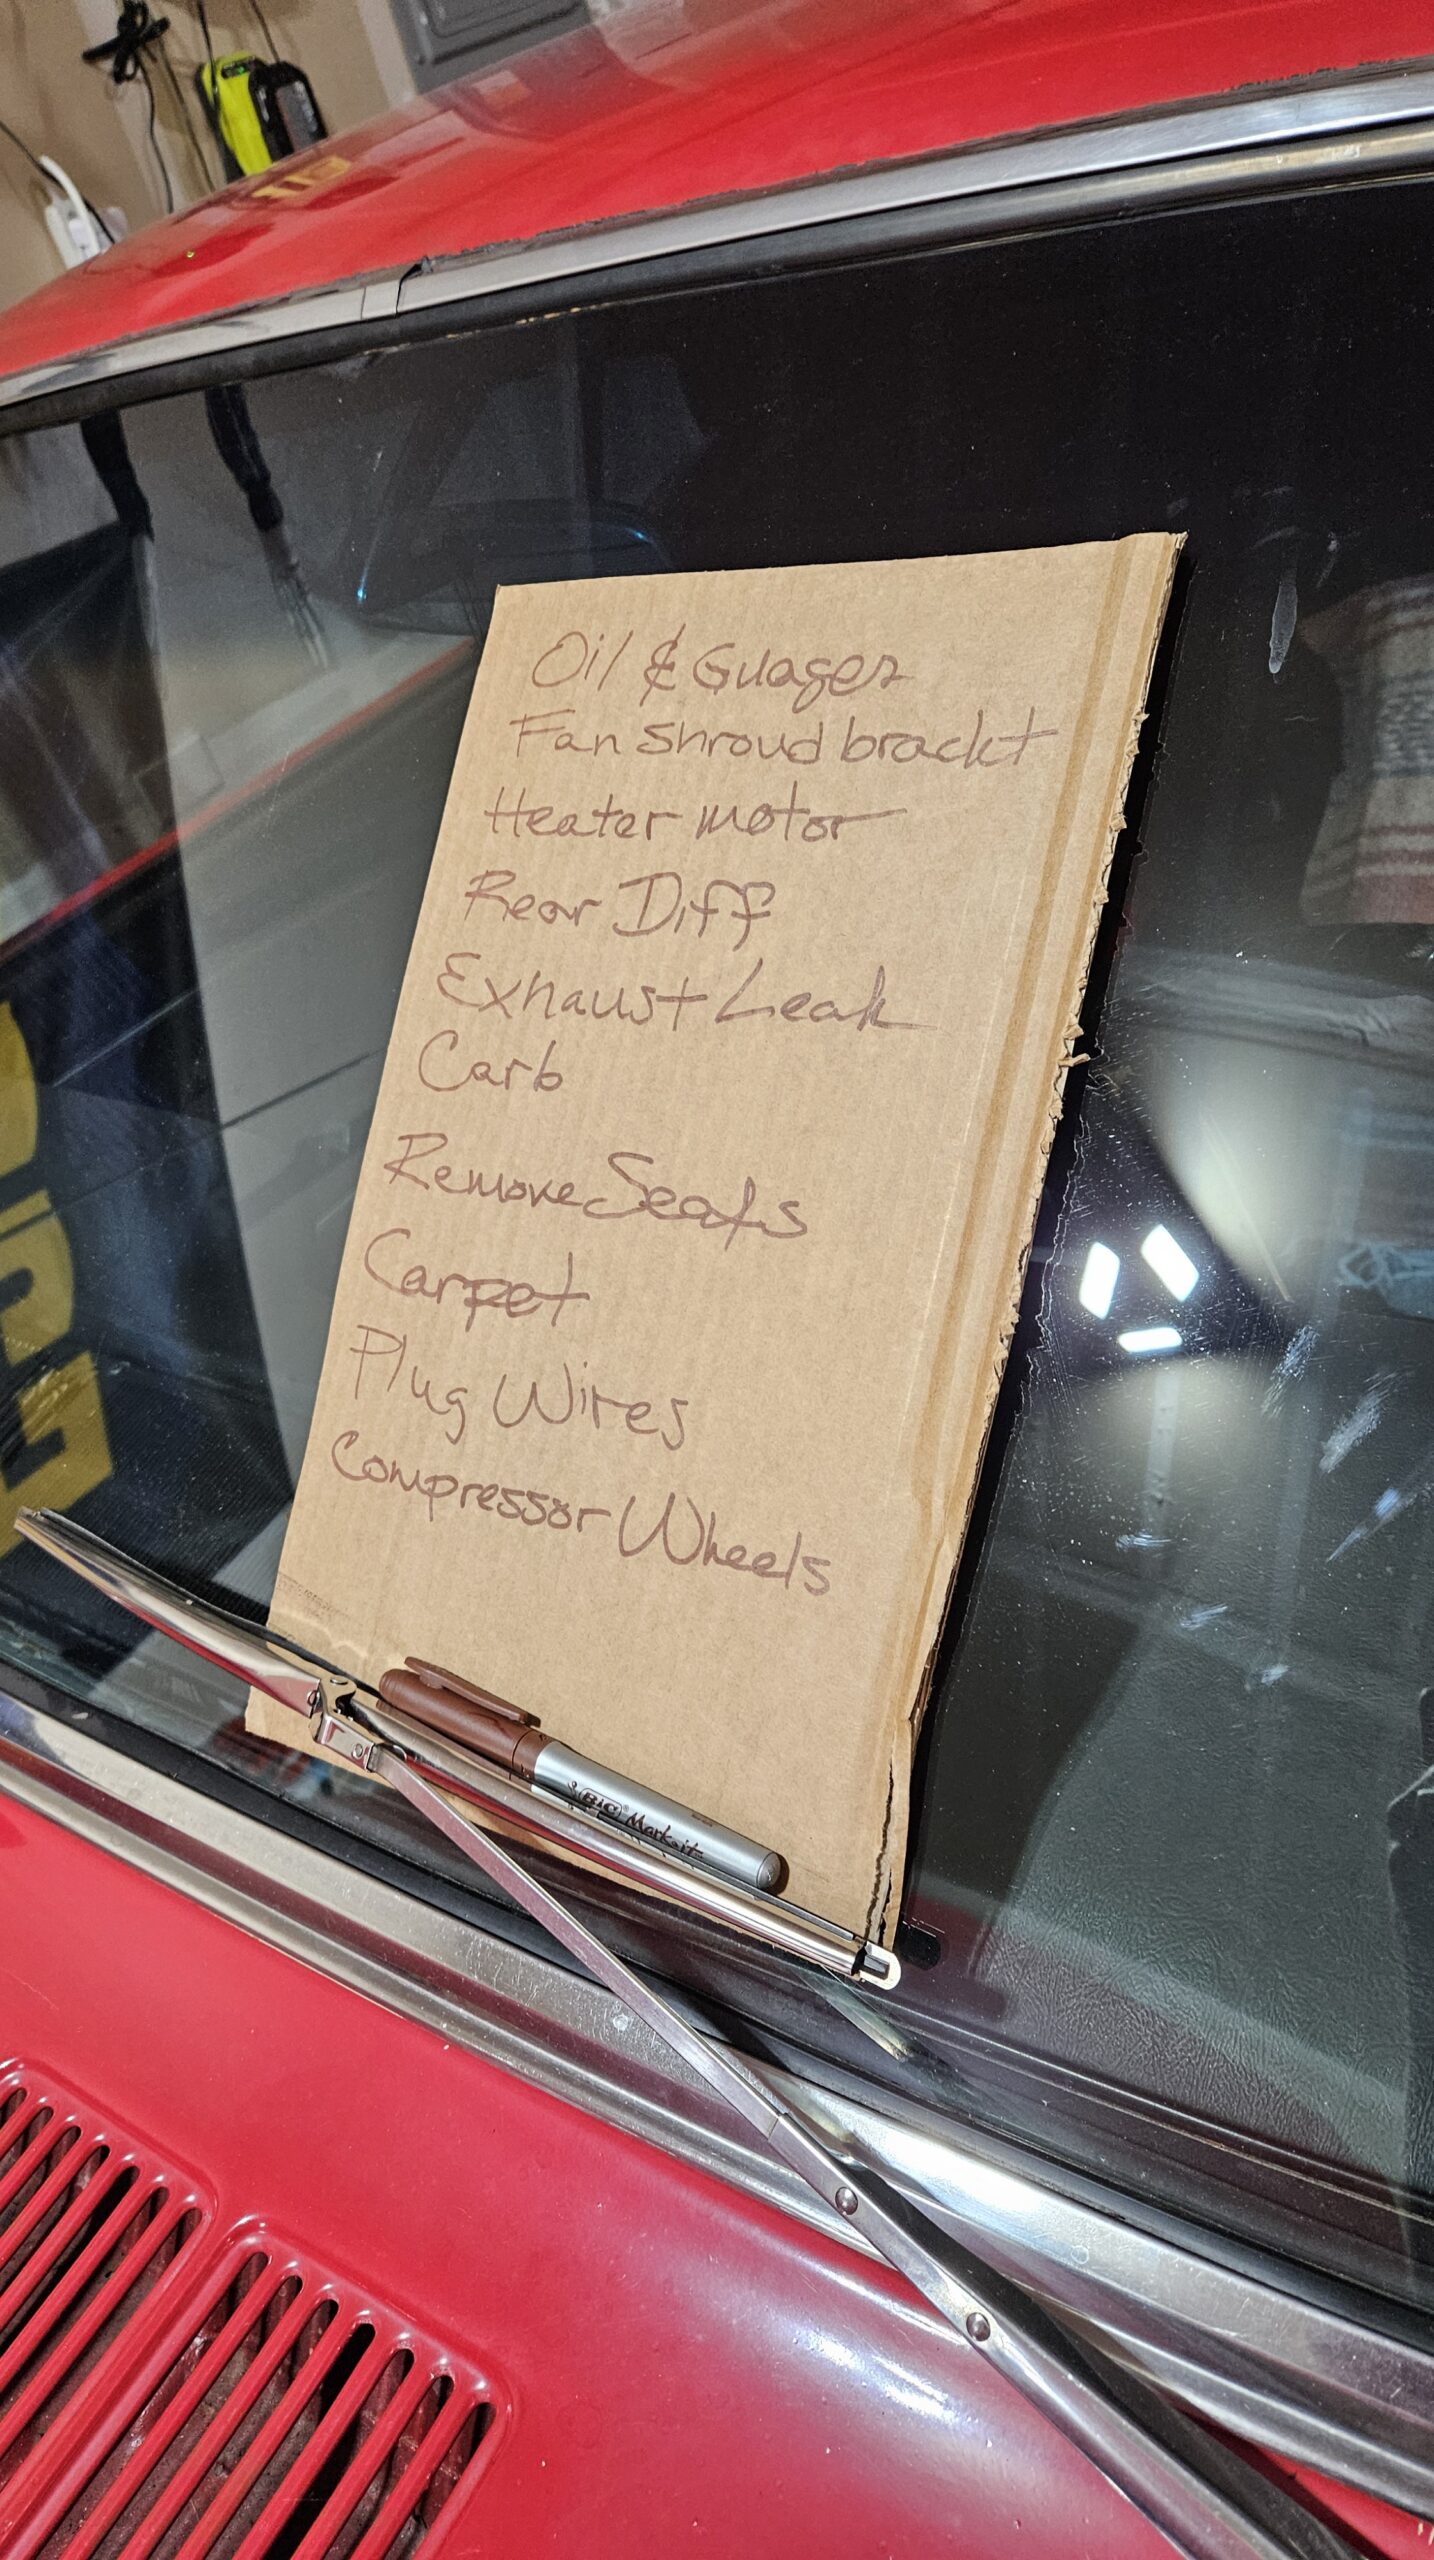 Oil & Guages
Fan Shroud brackt
Heater motor
Rear Diff
Exhaust Leak
Carb
Remove Seats
Carpet
Plug Wires
Compressor Wheels
BIC Mark-it